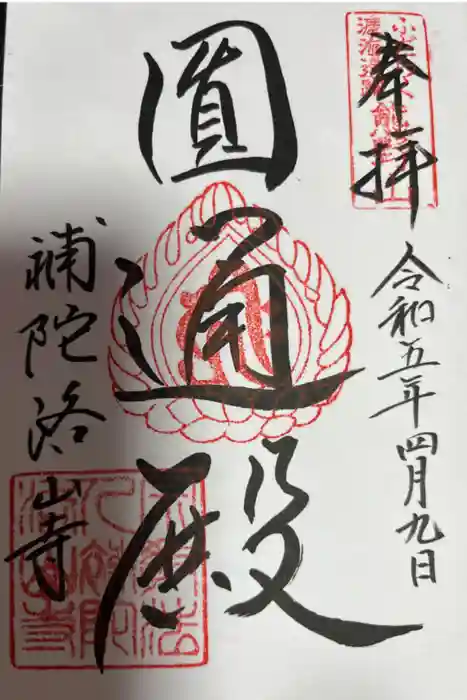 奉拝
令和五年四月九日
圓通殿
補陀洛山寺